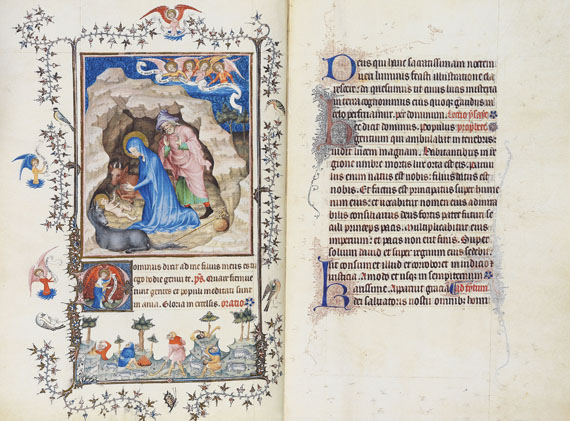 ominus dixit ad me filius meus es tu
ego hodie genui te. ps. Quare fremue
runt gentes et populi meditati sunt
in ania. Gloria in excelsis. oratio
Deus qui hanc sacratissimam noctem
veri luminis fecisti illustratione cla
rescere: da quesumus ut cuius lucis misteria
in terra cognovimus eius quoque gaudiis in
celo perfruamur. per dominum. lectio ysaye
Hec dicit dominus. Populus prophete
gentium qui ambulabat in tenebris:
vidit lucem magnam. Habitantibus in re
gione umbre mortis lux orta est eis. parvu
lus enim natus est nobis: filius datus est
nobis. Et factus est principatus super hume
rum eius: et vocabitur nomen eius admira
bilis consiliarius deus fortis pater futuri se
culi princeps pacis. Multiplicabitur eius
imperium: et pacis non erit finis. Super
solium david et super regnum eius sedebit:
ut confirmet illud et corroboret in iudicio et
iusticia. Amodo et usque in sempiternum
Karissime. Apparuit gracia ad tytum
dei salvatoris nostri omnibus homi